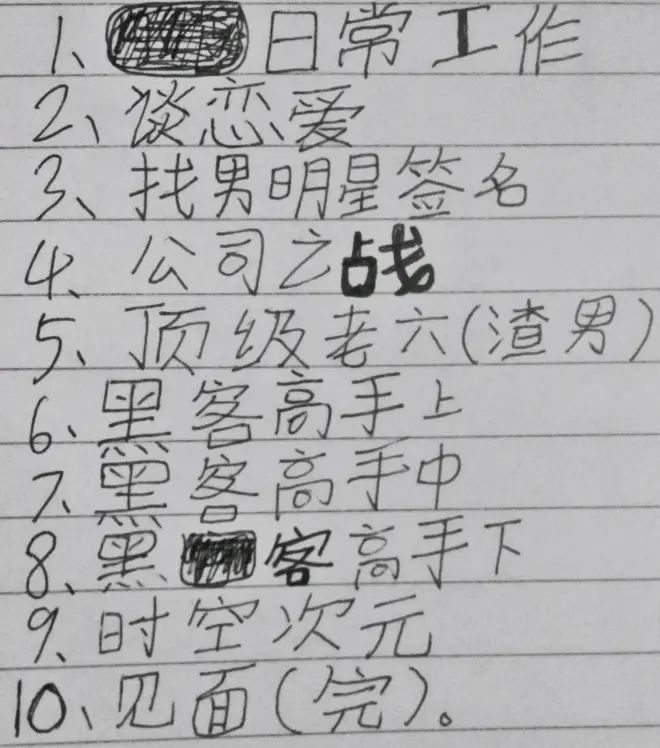 1、日常工作
2、谈恋爱
3、找男明星签名
4、公司之战
5、顶级老六(渣男)
6、黑客高手上
7、黑客高手中
8、黑客高手下
9、时空次元
10、见面(完)。